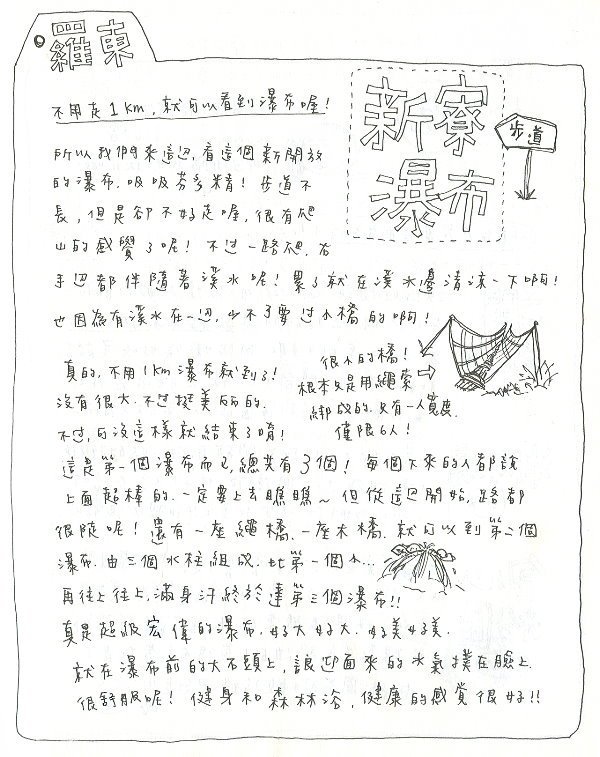 羅東
新寮
瀑布
步道
不用走1km,就可以看到瀑布喔!
所以我們來這边,看這個新開放
的瀑布.吸吸芬多精!步道不
長,但是卻不好走喔,很有爬
山的感覺了呢!不过一路爬,右
手边都伴隨著溪水呢!累了就在溪水邊清涼一下啊!
也因為有溪水在一边,少不了要过小橋的啊!
很小的橋!
根本只是用繩索
綁成的.只有一人寬度.
僅限6人!
真的,不用1km瀑布就到了!
沒有很大.不过挺美的.
不过,可沒這樣就結束了唷!
這是第一個瀑布而已,總共有3個!每個下來的人都說
上面超棒的.一定要上去瞧瞧~但從這边開始,路都
很陡呢!還有一座繩橋、一座木橋.就可以到第二個
瀑布.由三個水柱組成.比第一個小...
再往上往上,滿身汗終於達第三個瀑布!!
真是超級宏偉的瀑布.好大好大.好美好美.
就在瀑布前的大石頭上,讓迎面來的水氣撲在臉上.
很舒服呢!健身和森林浴,健康的感覺很好!!